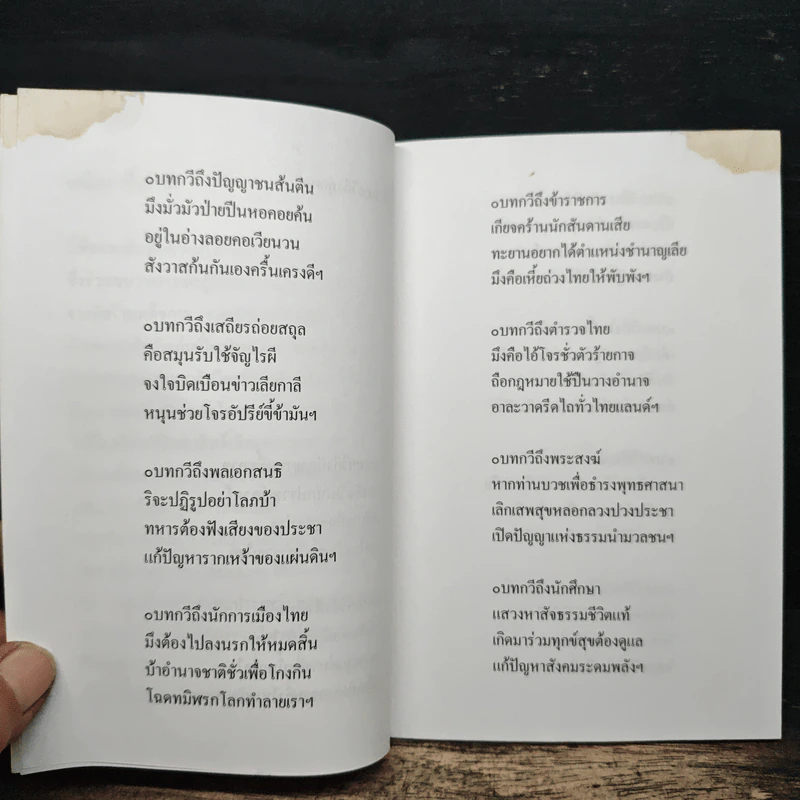 ๐บทกวีถึงปัญญาชนส้นตีน
มึงมั่วมัวป่ายปีนหอคอยค้น
อยู่ในอ่างลอยคอเวียนวน
สังวาสก้นกันเองครื้นเครงดีฯ
๐บทกวีถึงเสถียรถ่อยสถุล
คือสมุนรับใช้จัญไรผี
จงใจบิดเบือนข่าวเลียกาลี
หนุนช่วยโจรอัปรีย์ขี้ข้ามันฯ
๐บทกวีถึงพลเอกสนธิ
ริจะปฏิรูปอย่าโลภบ้า
ทหารต้องฟังเสียงของประชา
แก้ปัญหารากเหง้าของแผ่นดินฯ
๐บทกวีถึงนักการเมืองไทย
มึงต้องไปลงนรกให้หมดสิ้น
บ้าอำนาจชาติชั่วเพื่อโกงกิน
โฉดทมิฬรกโลกทำลายเราฯ
๐บทกวีถึงข้าราชการ
เกียจคร้านนักสันดานเสีย
ทะยานอยากได้ตำแหน่งชำนาญเลีย
มึงคือเหี้ยถ่วงไทยให้พับพังฯ
๐บทกวีถึงตำรวจไทย
มึงคือไอ้โจรชั่วตัวร้ายกาจ
ถือกฎหมายใช้ปืนวางอำนาจ
อาละวาดรีดไถทั่วไทยแลนด์ฯ
๐บทกวีถึงพระสงฆ์
หากท่านบวชเพื่อธำรงพุทธศาสนา
เลิกเสพสุขหลอกลวงปวงประชา
เปิดปัญญาแห่งธรรมนำมวลชนฯ
๐บทกวีถึงนักศึกษา
แสวงหาสัจธรรมชีวิตแท้
เกิดมาร่วมทุกข์สุขต้องดูแล
แก้ปัญหาสังคมระดมพลังฯ